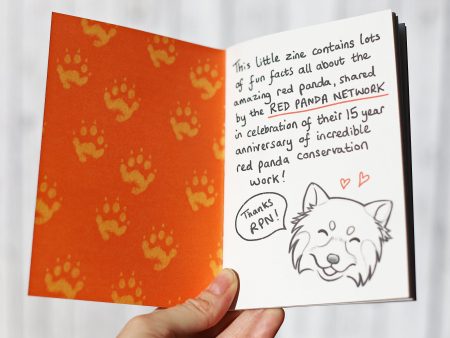 This little zine contains lots
of fun facts all about the
amazing red panda, shared
by the RED PANDA NETWORK
in celebration of their 15 year
anniversary of incredible
red panda conservation
work!
Thanks
RPN!